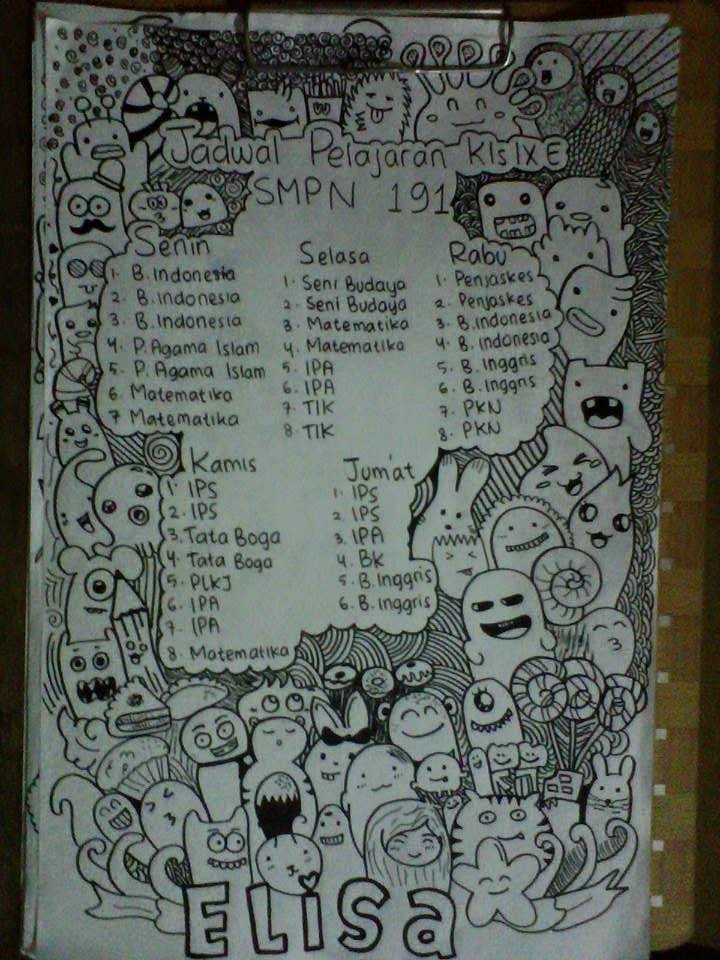 Jadwal Pelajaran Kls IX E
SMPN 191
Senin
1. B. Indonesia
2. B. Indonesia
3. B. Indonesia
4. P. Agama Islam
5. P. Agama Islam
6. Matematika
7 Matematika
Selasa
1. Seni Budaya
2. Seni Budaya
3. Matematika
4. Matematika
5. IPA
6. IPA
7. TIK
8. TIK
Rabu
1. Penjaskes
2. Penjaskes
3. B. Indonesia
4. B. Indonesia
5. B. Inggris
6. B. Inggris
7. PKN
8. PKN
Kamis
1. IPS
2. IPS
3. Tata Boga
4. Tata Boga
5. PLKJ
6. IPA
7. IPA
8. Matematika
Jum'at
1. IPS
2. IPS
3. IPA
4. BK
5. B. Inggris
6. B. Inggris
ELiSa